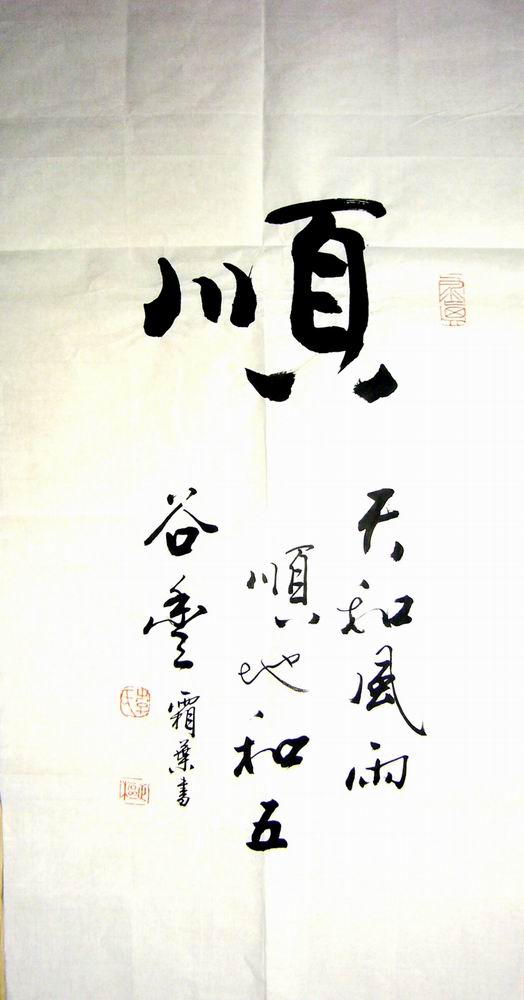 順
天和風雨
順地和五
谷豊
霜葉書